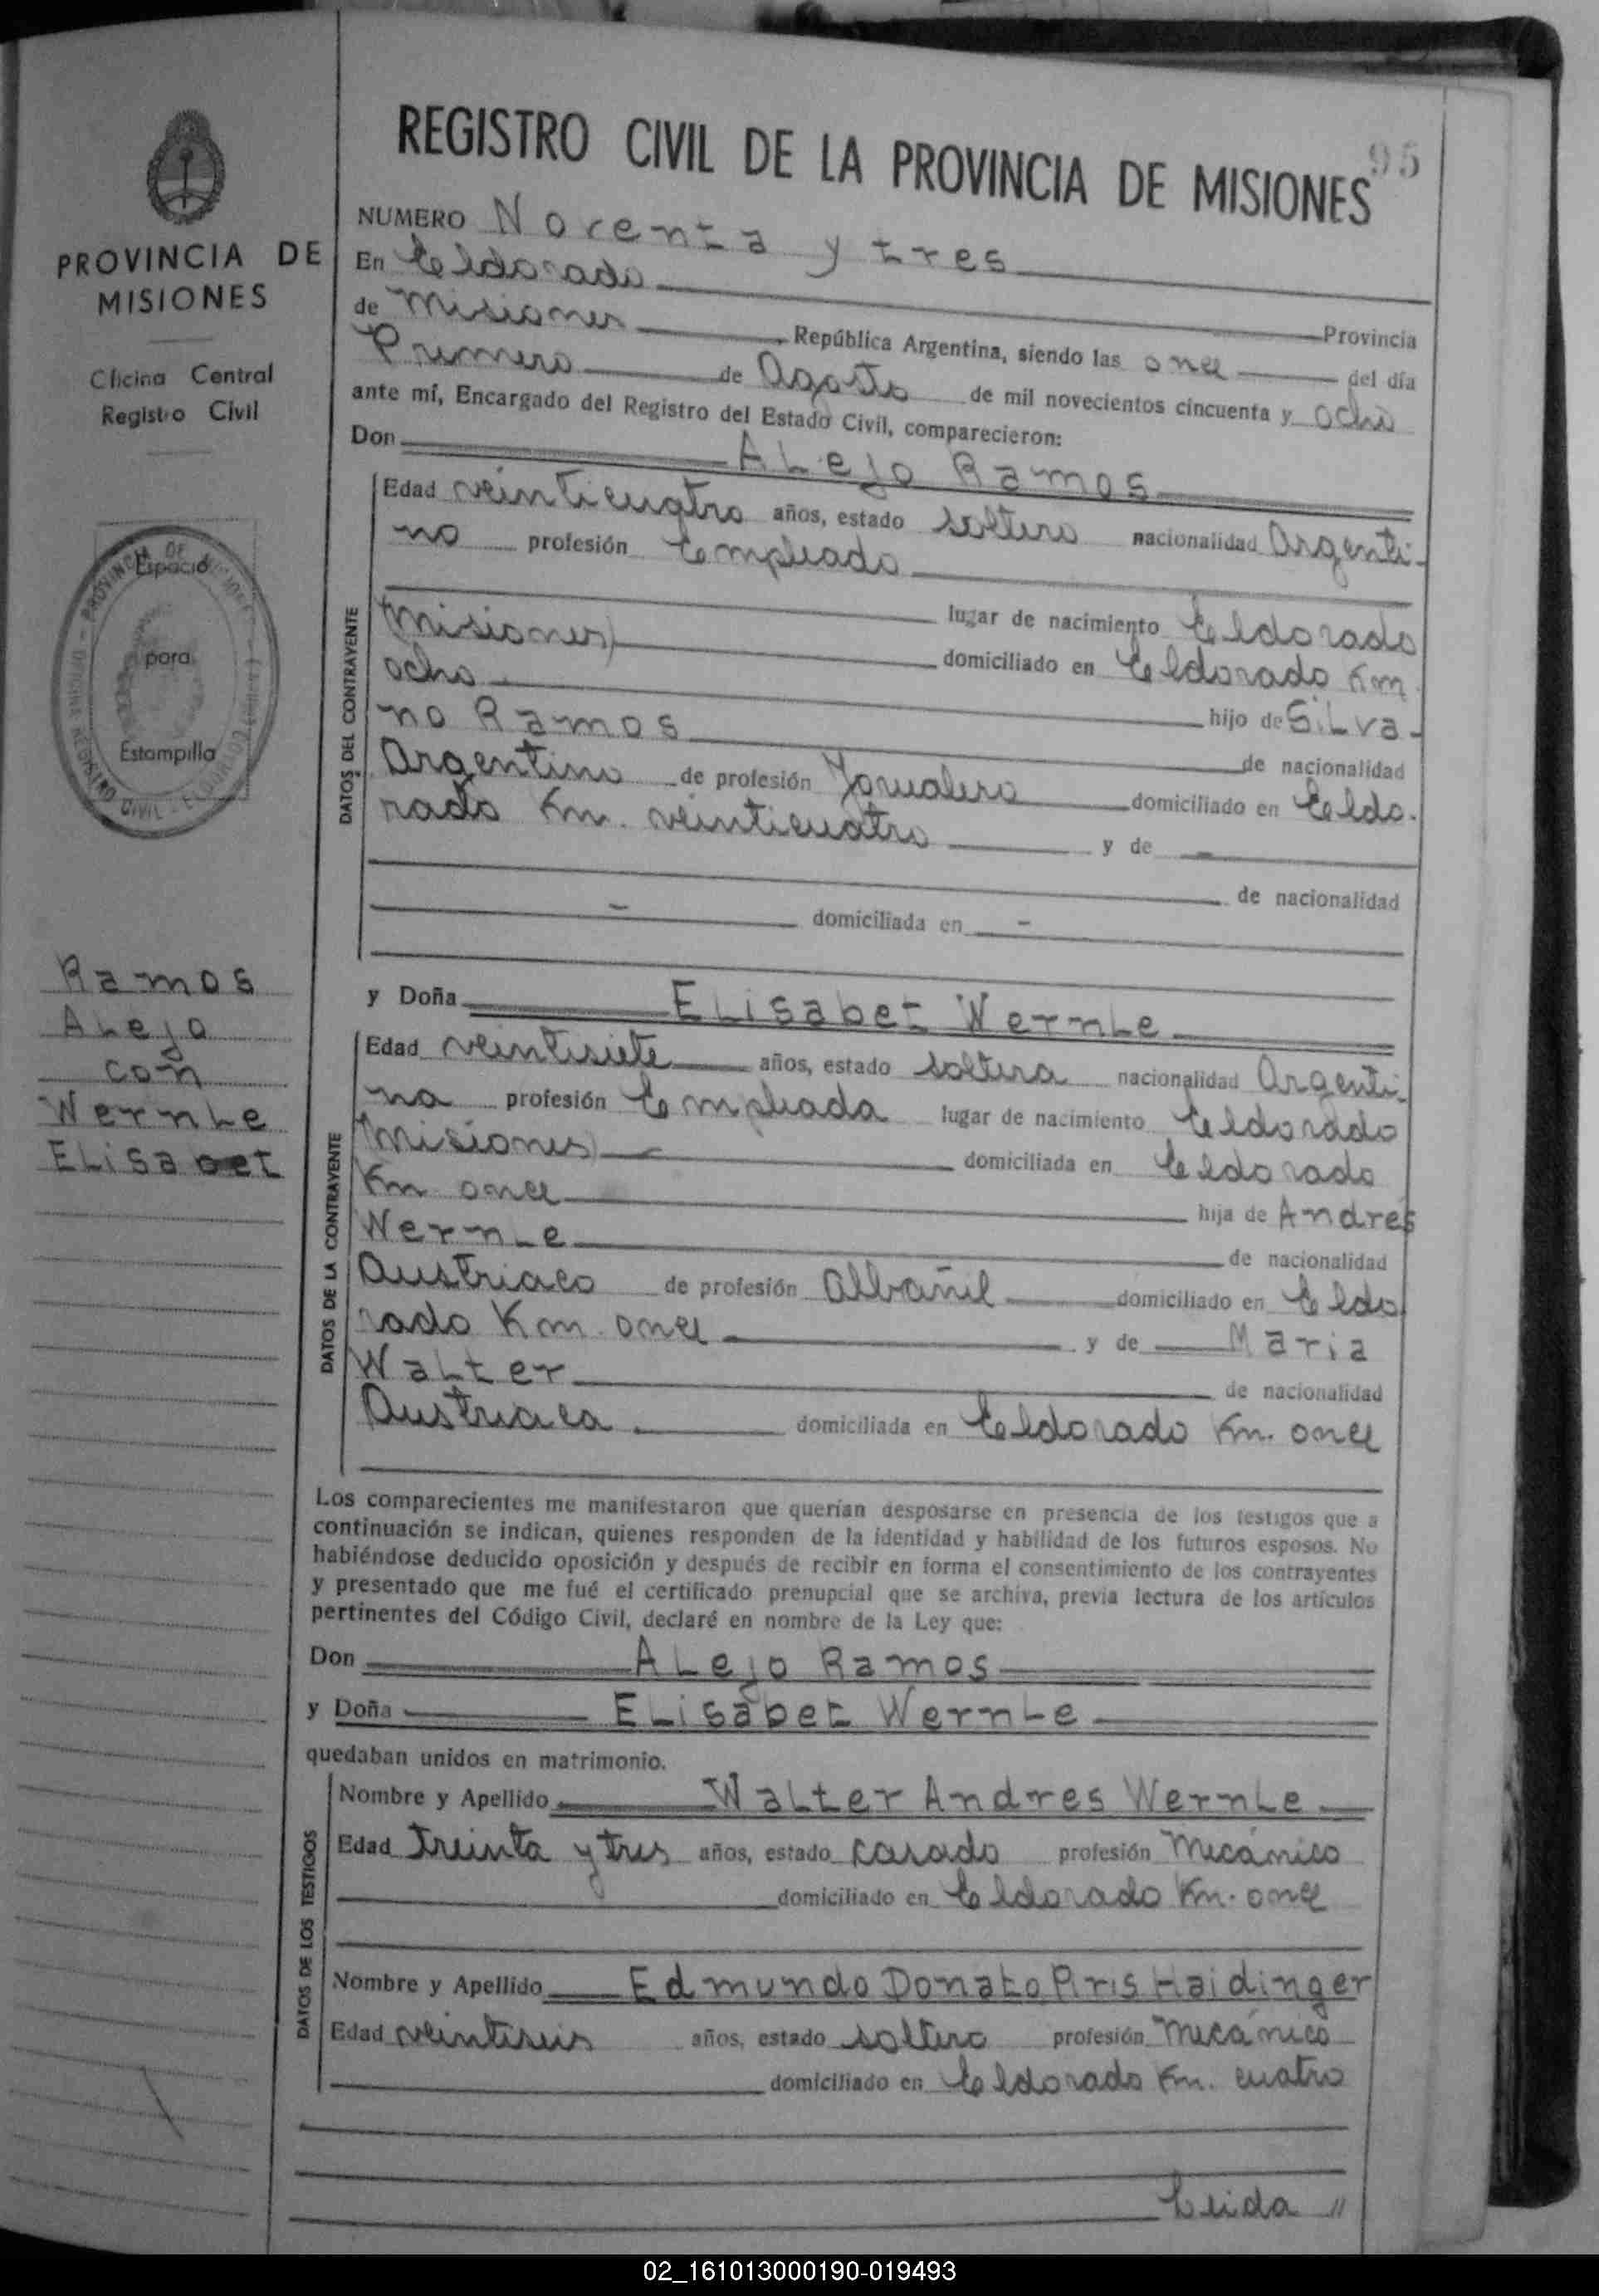 95
PROVINCIA DE
MISIONES
Oficina Central
Registro Civil
Espacio
para
Estampilla
Ramos
ALejo
con
WernLe
ELisabet
REGISTRO CIVIL DE LA PROVINCIA DE MISIONES
NUMERO Noventa y tres
En Eldorado Provincia
de Misiones República Argentina, siendo las once del día
Primero de Agosto de mil novecientos cincuenta y ocho
ante mí, Encargado del Registro del Estado Civil, comparecieron:
Don ALejo Ramos
DATOS DEL CONTRAYENTE
Edad veinticuatro años, estado soltero nacionalidad Argenti-
no profesión Empleado
lugar de nacimiento Eldorado
(Misiones) domiciliado en Eldorado Km.
ocho hijo de SiLva-
no Ramos de nacionalidad
Argentino de profesión Jornalero domiciliado en Eldo-
rado Km. veinticuatro y de -
de nacionalidad
- domiciliada en -
y Doña ELisabet WernLe
DATOS DE LA CONTRAYENTE
Edad veintisiete años, estado soltera nacionalidad Argenti-
na profesión Empleada lugar de nacimiento Eldorado
(Misiones) domiciliada en Eldorado
Km once hija de Andrés
WernLe de nacionalidad
Austriaco de profesión Albañil domiciliado en Eldo
rado Km. once y de Maria
WaLter de nacionalidad
Austriaca domiciliada en Eldorado Km. once
Los comparecientes me manifestaron que querían desposarse en presencia de los testigos que a
continuación se indican, quienes responden de la identidad y habilidad de los futuros esposos. No
habiéndose deducido oposición y después de recibir en forma el consentimiento de los contrayentes
y presentado que me fué el certificado prenupcial que se archiva, previa lectura de los artículos
pertinentes del Código Civil, declaré en nombre de la Ley que:
Don ALejo Ramos
y Doña ELisabet WernLe
quedaban unidos en matrimonio.
DATOS DE LOS TESTIGOS
Nombre y Apellido WaLter Andres WernLe
Edad Treinta y tres años, estado casado profesión Mecánico
domiciliado en Eldorado Km. once
Nombre y Apellido Edmundo Donato Piris Haidinger
Edad veintiseis años, estado soltero profesión Mecánico
domiciliado en Eldorado Km. cuatro
Leida //
02_161013000190-019493